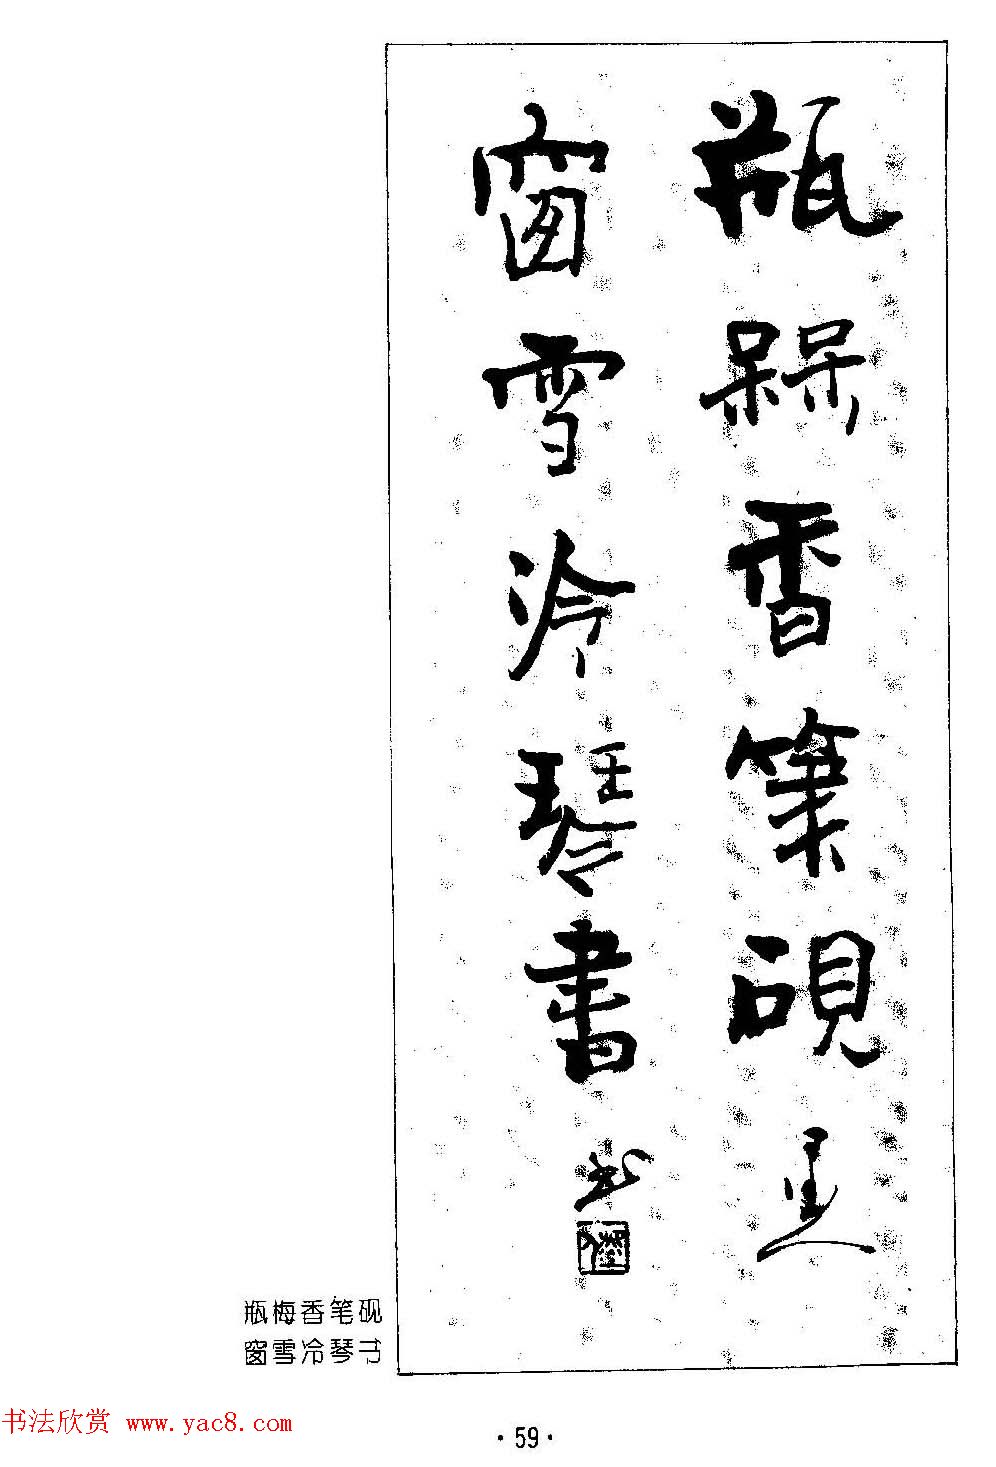 瓶槑香筆硯
窗雪冷琴書
瓶梅香笔砚
窗雪冷琴书
书法欣赏 www.yac8.com
·59·